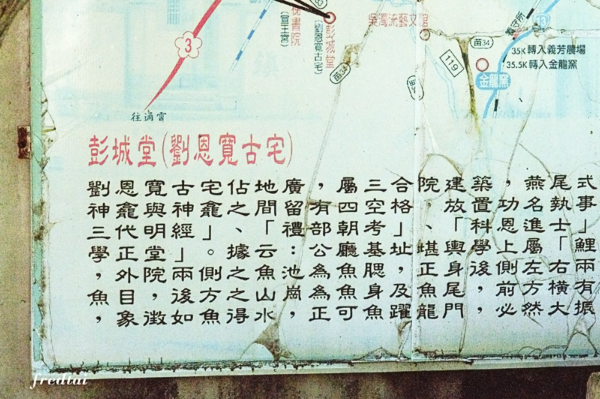 3
宣王宮
彭城堂
(劉恩寬古宅)
吳濁流藝文館
苗34
119
35K轉入義芳農場
35.5K轉入金龍窯
金龍窯
往造雪
彭城堂(劉恩寬古宅)
劉恩寬古宅佔地廣，屬三合院建築，燕尾式
神龕與神龕之間留有四空格，放置功名執事
三代明經」、「禮部朝考」、「科恩進士」
學正堂」。據云：公廳基址，堪輿學上屬「鯉
魚，外院兩側之魚池為魚腮，正身後側左右兩
魚目，後方之山崗為魚身及魚尾，前方橫有
，象徵如魚得水，正可魚躍龍門，必然大振